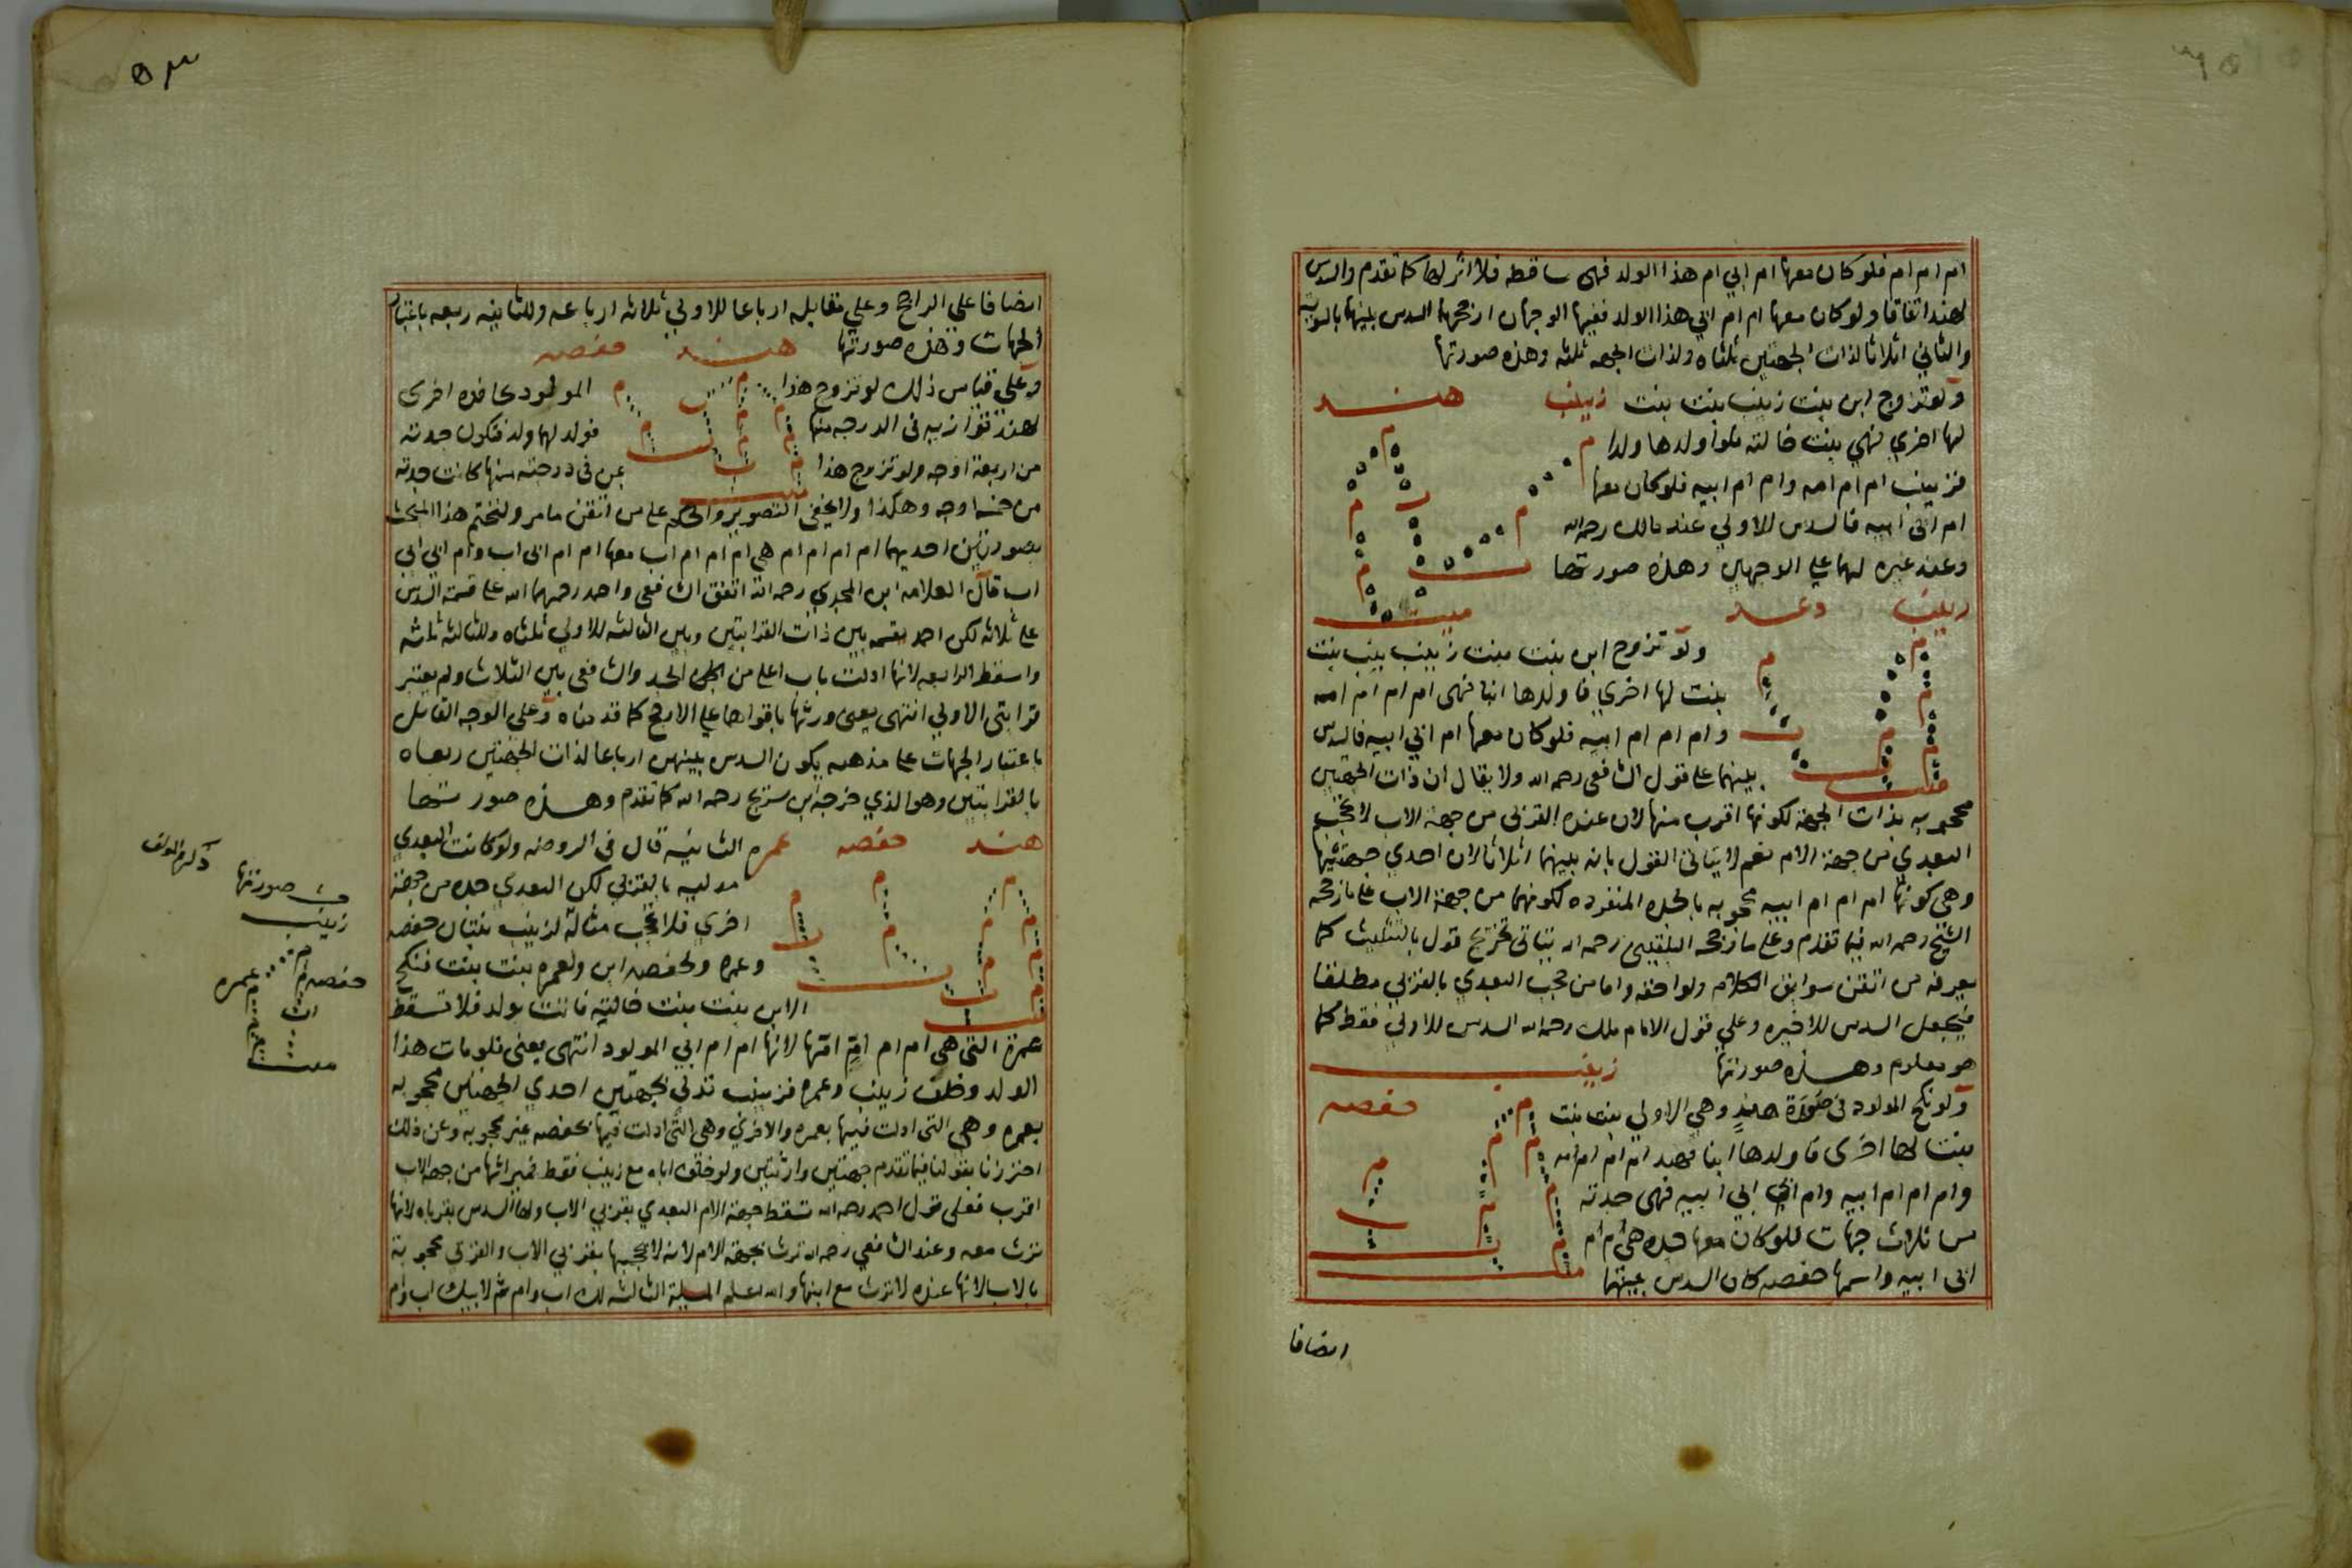 ام ام ام فلو كان معها ام ابي ام هذا الولد فهى ساقطه فلا اثر لها كما تقدم والسدس
لهند اتفاقا ولو كان معها ام ام ابي هذا الولد ففيها الوجهان ارجحهما السدس بينهما بالسويه
والثاني اثلاثا لذات الجهتين ثلثاه ولذات الجهه ثلثه وهذه صورتها
ولو تزوج ابن بنت زينب بنت بنت زينب هند
لها اخري فهي بنت خالته فلو اولدها ولدا
فزينب ام ام امه وام ام ابيه فلو كان معها
ام ابى ابيه فالسدس للاولي عند مالك رحمه الله
وعند غيره لهما علي الوجهين وهذه صورتها
زينب دعد ميت
ولو تزوج ابن بنت بنت زينب بنت بنت
بنت لها اخري فاولدها ابنا فهى ام ام ام امه
وام ام ام ابيه فلو كان معها ام ابي ابيه فالسدس
بينهما على قول الشافعى رحمه الله ولا يقال ان ذات الجهتين
محجوبه بذات الجهة لكونها اقرب منها لان عنده القربى من جهة الاب لا تحجب
البعدي من جهة الام نعم لا يتاتى القول بانه بينهما اثلاثا لان احدي جهتيها
وهى كونها ام ام ام ابيه محجوبه بالجده المنفرده لكونهما من جهة الاب على ما رجحه
الشيخ رحمه الله فيما تقدم وعلى ما رجحه البلقينى رحمه الله يتاتى تخريج قول بالتثليث كما
يعرفه من اتقن سوابق الكلام ولواحقه واما من يحجب البعدي بالقربي مطلقا
فيجعل السدس للاخيره وعلي قول الامام ملك رحمه الله السدس للاولي فقط كما
هو معلوم وهذه صورتها زينب
ولو نكح المولود فى صورة هند وهي الاولي بنت بنت حفصه
بنت لها اخرى فاولدها ابنا فهند ام ام ام امه
وام ام ام ابيه وام ابي ابيه فهى جدته
من ثلاث جهات فلو كان معها جده هى ام ام
ابى ابيه واسمها حفصه كان السدس بينهما
انصافا
٥٣
انصافا على الراجح وعلي مقابله ارباعا للاولي ثلاثه ارباعه وللثانيه ربعه باعتبار
الجهات وهذه صورتها هند حفصه
وعلي قياس ذلك لو تزوج هذا المولود بحافده اخرى
لهند توازيه فى الدرجه منها فولد لهما ولد فتكون جدته
من اربعة اوجه ولو تزوج هذا بمن فى درجته منها كانت جدته
من خمسة اوجه وهكذا ولا يخفى التصوير والحكم على من اتقن ما مر ولنختم هذا المبحث
بصورتين احديهما ام ام ام ام ام هي ام ام ام ام اب معها ام ام ابى اب وام ابي ابي
اب قال العلامه ابن المجدي رحمه الله اتفق الشافعى واحمد رحمهما الله على قسمة السدس
على ثلاثه لكن احمد يقسمه بين ذات القرابتين وبين الثالثه للاولي ثلثاه وللثالثه ثلثه
واسقط الرابعه لانها ادلت باب اعلى من الجد والشافعى بين الثلاث ولم يعتبر
قرابتى الاولي انتهى يعنى ورثها باقواهما على الارجح كما قدمناه وعلى الوجه القائل
باعتبار الجهات على مذهبه يكون السدس بينهن ارباعا لذات الجهتين ربعاه
بالقرابتين وهو الذي خرجه ابن سريج رحمه الله كما تقدم وهذه صورتها
هند حفصه عمره الثانيه قال فى الروضه ولو كانت البعدي
مدليه بالقربي لكن البعدي جده من جهة
اخري فلا تحجب مثاله لزينب بنتان حفصه
وعمره ولحفصه ابن ولعمره بنت بنت فنكح
الابن بنت بنت خالته فاتت بولد فلا تسقط
عمرة التى هي ام ام ام امها لانها ام ام ابي المولود انتهى يعنى فلو مات هذا
الولد وخلف زينب وعمره فزينب تدلي بجهتين احدي الجهتين محجوبه
بعمره وهى التى ادلت فيها بعمره والاخري وهى التى ادلت فيها بحفصه غير محجوبه وعن ذلك
احترزنا بقولنا فيما تقدم جهتين وارثتين ولو خلف اباه مع زينب فقط فميراثها من جهة الاب
اقرب فعلى قول احمد رحمه الله تسقط جهة الام البعدي بقربي الاب ولها السدس بقرباه لانها
ترث معه وعند الشافعي رحمه الله ترث بجهة الام لانه لا يحجبها بقربي الاب والقربي محجوبة
بالاب لانها عنده لا ترث مع ابنها والله اعلم المسيلة الثالثه لك اب وام ثم لابيك اب وام
صورتها
زينب
حفصه عمره
ميت